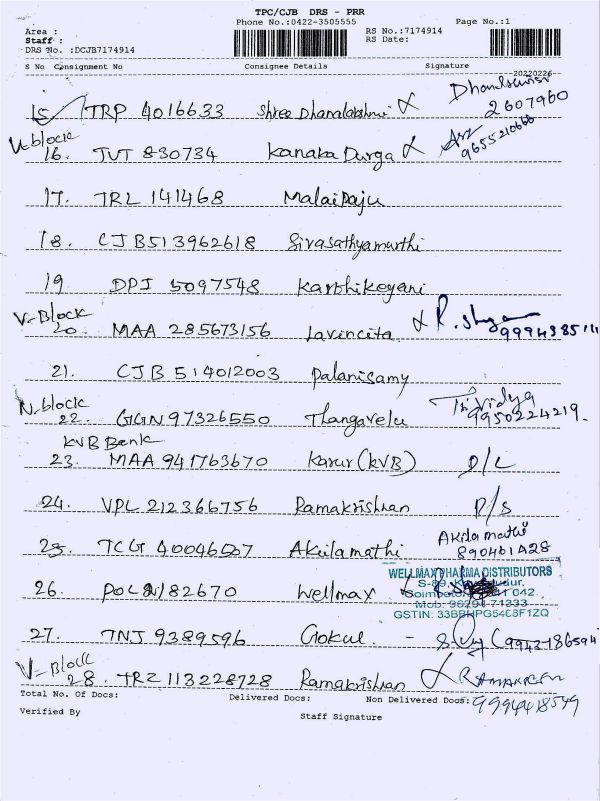 TPC/CJB DRS - PRR
Phone No.:0422-3505555 Page No.:1
Area :
Staff :
DRS No. :DCJB7174914
RS No.:7174914
RS Date:
S No Consignment No Consignee Details Signature
20220226
15 TRP 4016633 Shree Dhanalakshmi
2607960
V-block
16. TUT 830734 Kanaka Durga
9655210666
17. TRL 141468 Malairaju
18. CJB513962618 Sivasathyamurthi
19 DPI 5097548 Karthikeyani
V-Block
20. MAA 285673156 Lavincita R. Shyam
21. CJB 514012003 Palanisamy
N-block
22. GGN 97326550 Thangavelu Tri Vidya
9950224219.
KVB Bank
23. MAA 941763670 Karur (KVB) D/L
24. VPL 212366756 Ramakrishnan D/S
25. TCG 40046507 Akilamathi Akilamathi
890461428
WELLMAX PHARMA DISTRIBUTORS
26. POL 182670 Wellmax
Mob: 96291 71333
27. TNJ 9389596 Gokul - (9942186594
V-Block
28. TRZ 113228728 Ramakrishnan
9994418549
Total No. Of Docs: Delivered Docs: Non Delivered Docs:
Verified By Staff Signature